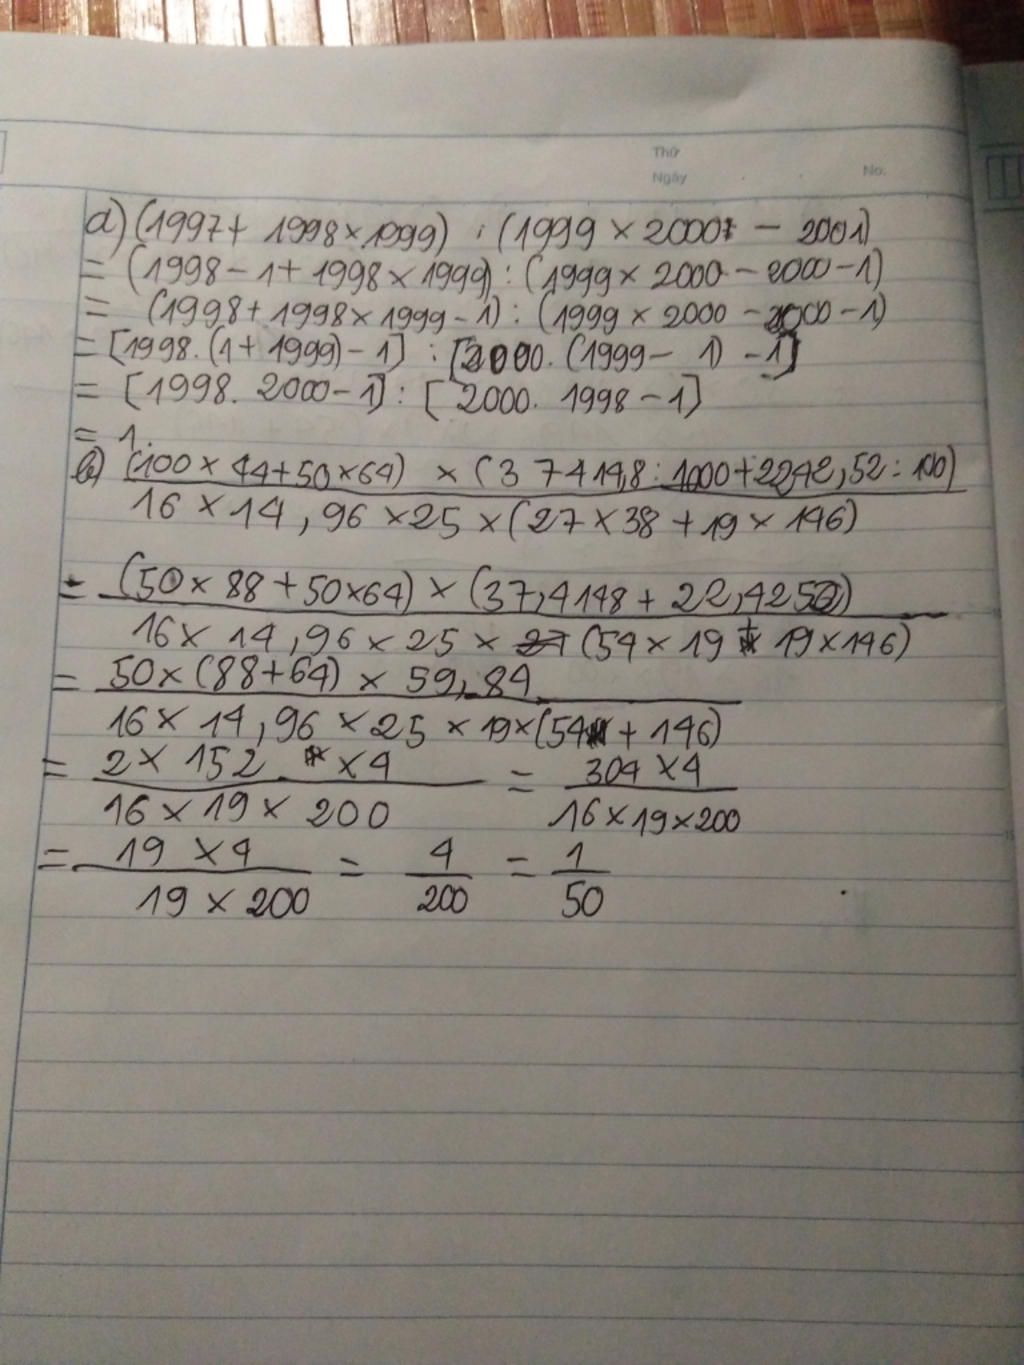 Thứ
Ngày
No.
a) (1997 + 1998 × 1999) : (1999 × 2000 - 2001)
= (1998 - 1 + 1998 × 1999) : (1999 × 2000 - 2000 - 1)
= (1998 + 1998 × 1999 - 1) : (1999 × 2000 - 2000 - 1)
= [1998. (1 + 1999) - 1] : [2000. (1999 - 1) - 1]
= [1998. 2000 - 1] : [2000. 1998 - 1]
= 1.
b) (100 × 44 + 50 × 64) × (37414,8 : 1000 + 2242,52 : 100)
16 × 14,96 × 25 × (27 × 38 + 19 × 146)
= (50 × 88 + 50 × 64) × (37,4148 + 22,4252)
16 × 14,96 × 25 × (54 × 19 + 19 × 146)
= 50 × (88 + 64) × 59,84
16 × 14,96 × 25 × 19 × (54 + 146)
= 2 × 152 × 4 = 304 × 4
16 × 19 × 200 16 × 19 × 200
= 19 × 4 = 4 = 1
19 × 200 200 50